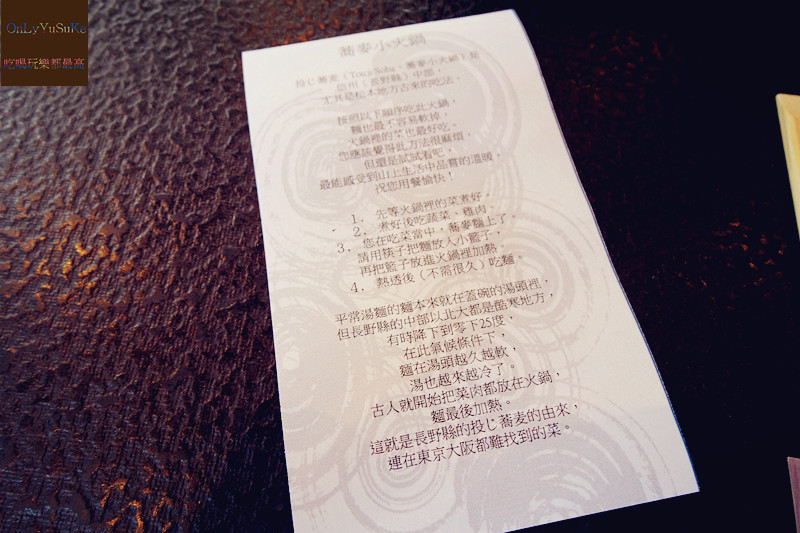 OnLyYuSuKe
吃喝玩樂都最高
蕎麥小火鍋
投じ蕎麦（TouJiSoba，蕎麥小火鍋）是
信州（長野縣）中部，
尤其是松本地方古來的吃法，
按照以下順序吃此火鍋，
麵也最不容易軟掉，
火鍋裡的菜也最好吃。
您應該覺得此方法很麻煩，
但還是試試看吧，
最能感受到山上生活中品嘗的溫暖，
祝您用餐愉快！
1. 先等火鍋裡的菜煮好，
2. 煮好後吃蔬菜、雞肉。
3. 您在吃菜當中，蕎麥麵上了。
請用筷子把麵放入小籃子，
再把籃子放進火鍋裡加熱，
4. 熱透後（不需很久）吃麵。
平常湯麵的麵本來就在蓋碗的湯頭裡，
但長野縣的中部以北大都是酷寒地方，
有時降下到零下25度，
在此氣候條件下，
麵在湯頭越久越軟，
湯也越來越冷了。
古人就開始把菜肉都放在火鍋，
麵最後加熱。
這就是長野縣的投じ蕎麦的由來，
連在東京大阪都難找到的菜。